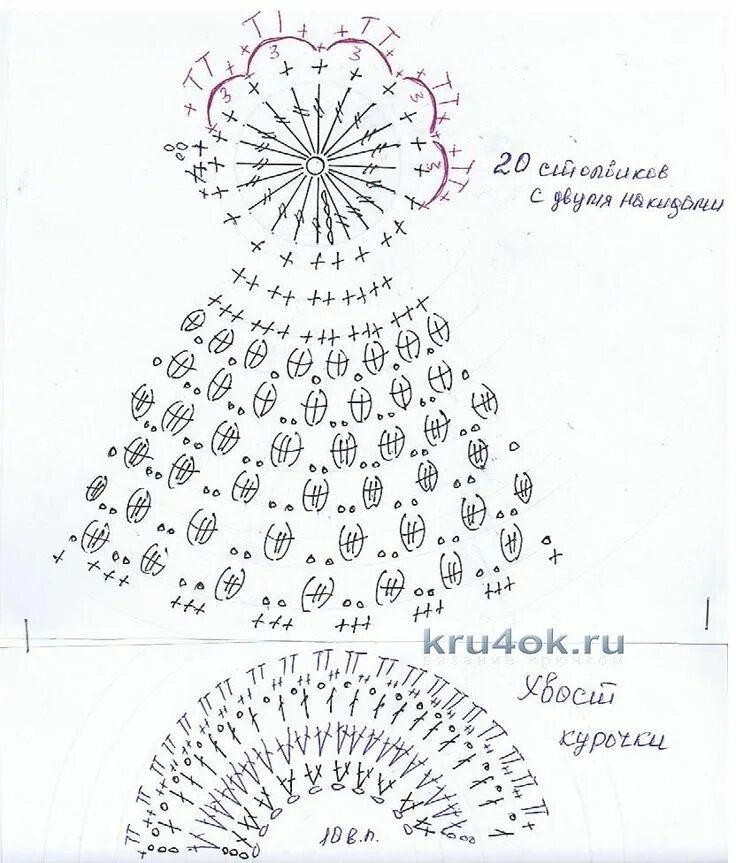 3
3
3
3
3
20 столбиков
с двумя накидами
kru4ok.ru
вязание крючком
Хвост
курочки
10 в.п.